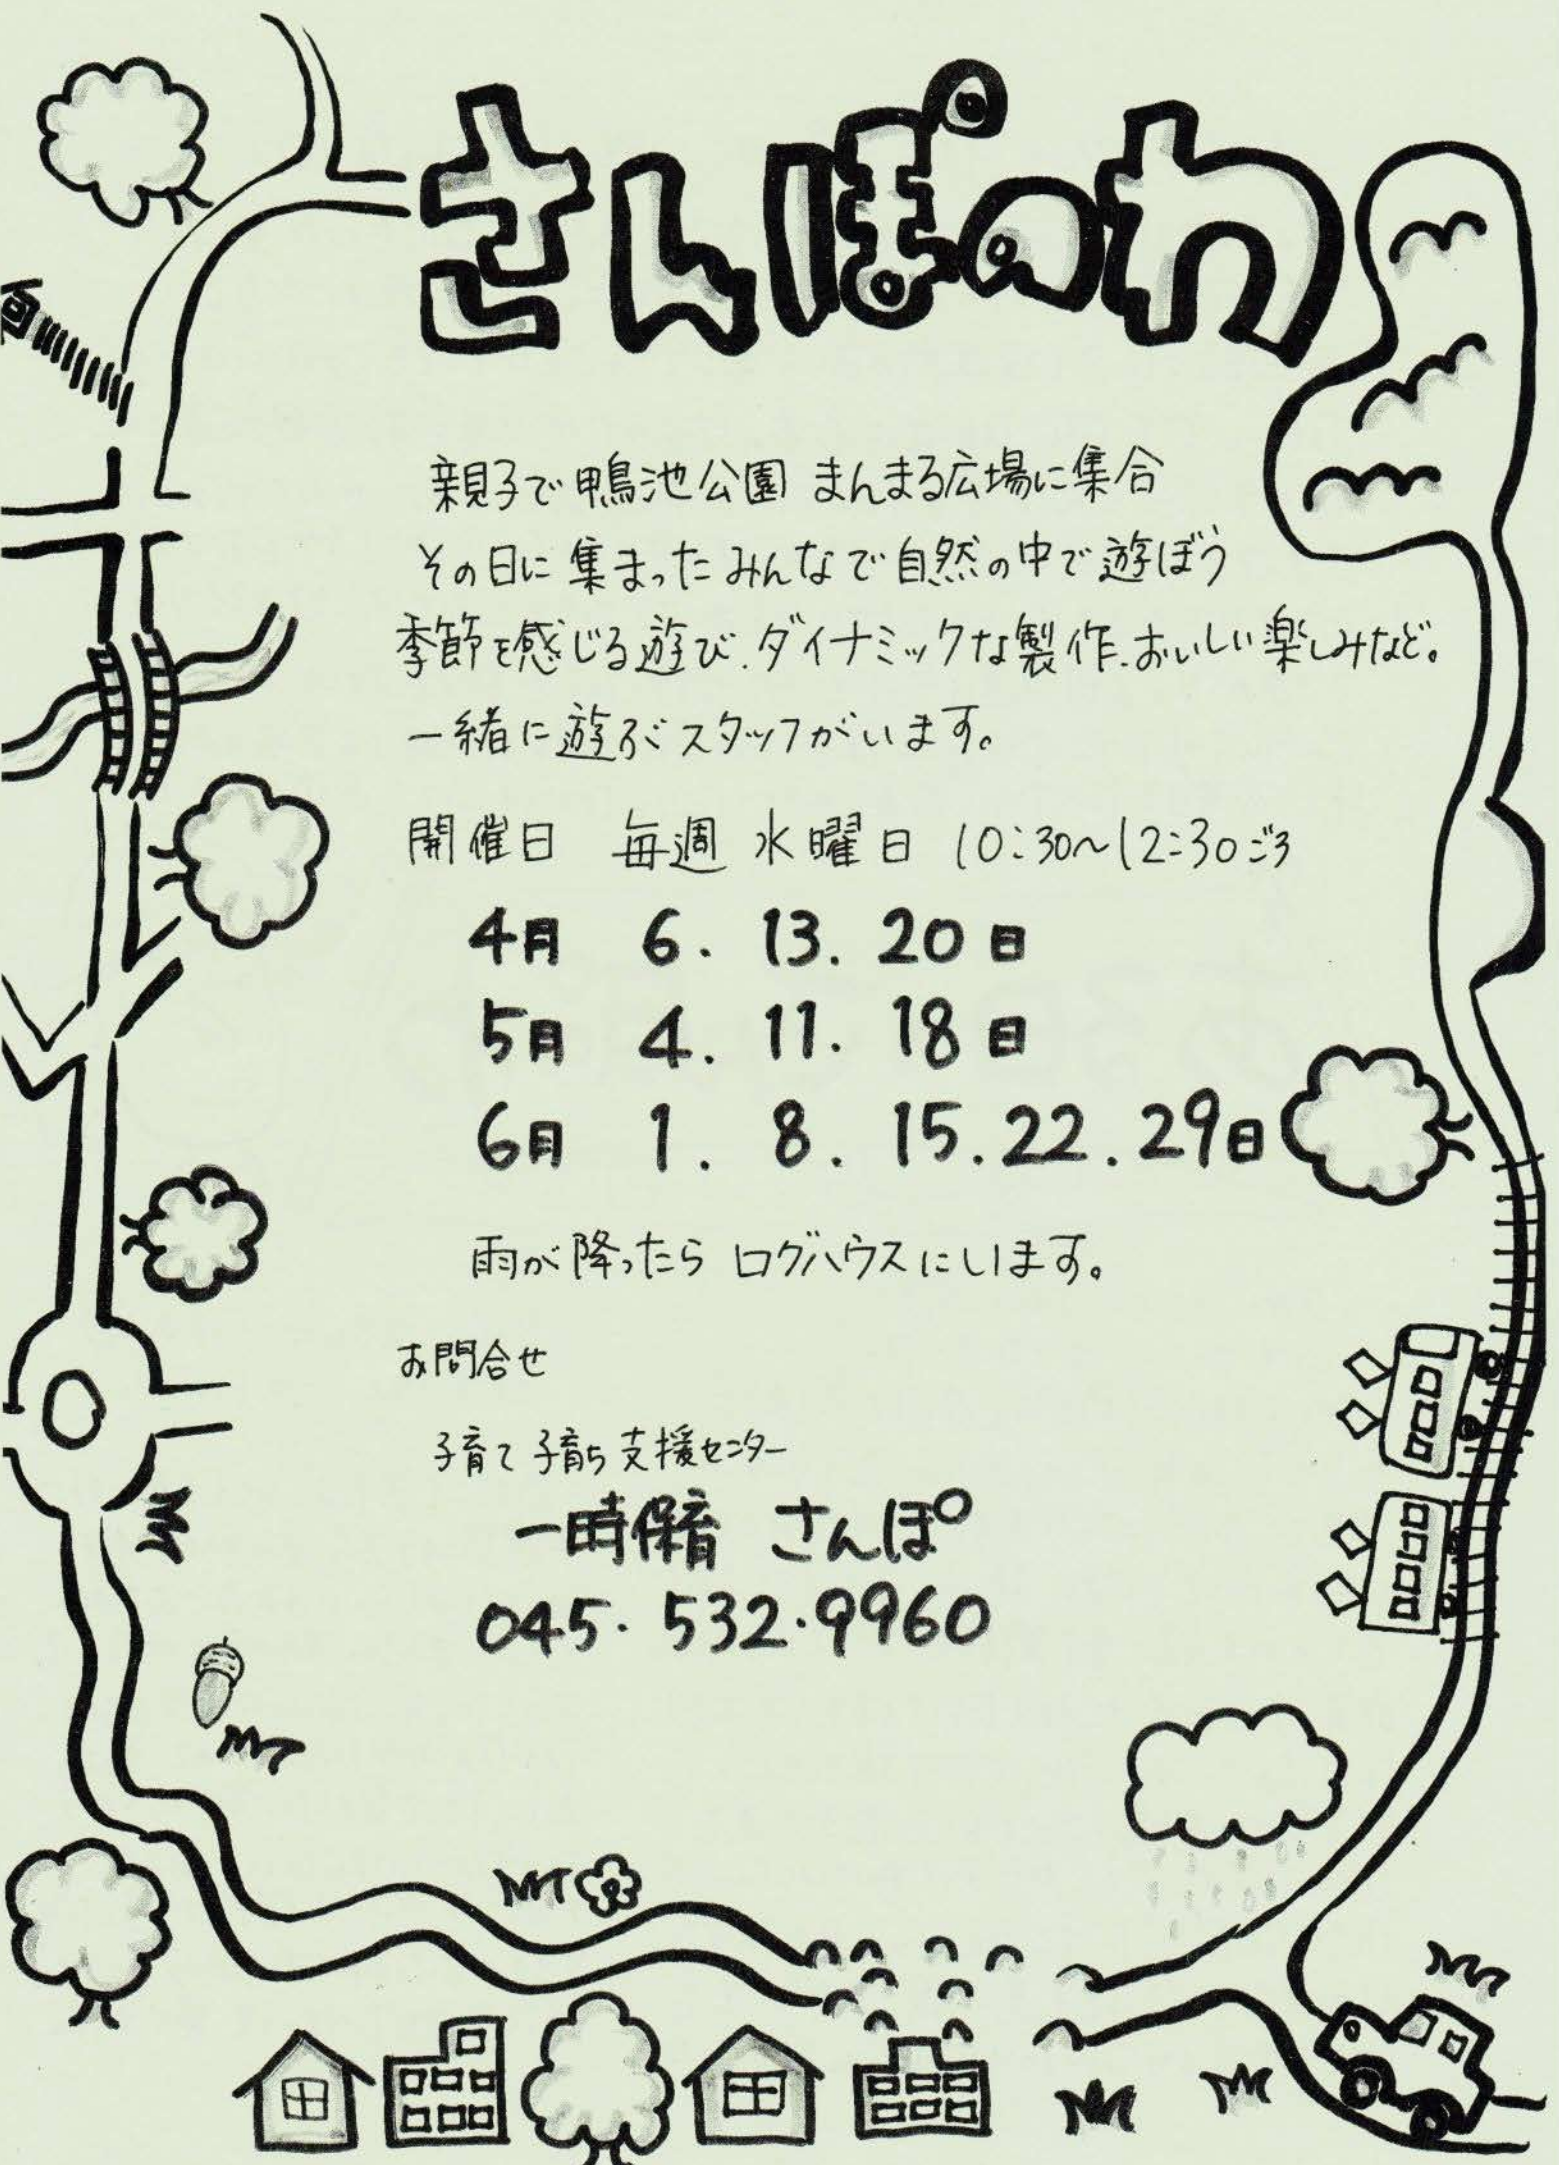 さんぽのわ
親子で鴨池公園 まんまる広場に集合
その日に集まったみんなで自然の中で遊ぼう
季節を感じる遊び、ダイナミックな製作、おいしい楽しみなど。
一緒に遊ぶスタッフがいます。
開催日 毎週 水曜日 10:30〜12:30ごろ
4月 6. 13. 20日
5月 4. 11. 18日
6月 1. 8. 15. 22. 29日
雨が降ったら ログハウスにします。
お問合せ
子育て子育ち支援センター
一時保育 さんぽ
045・532・9960